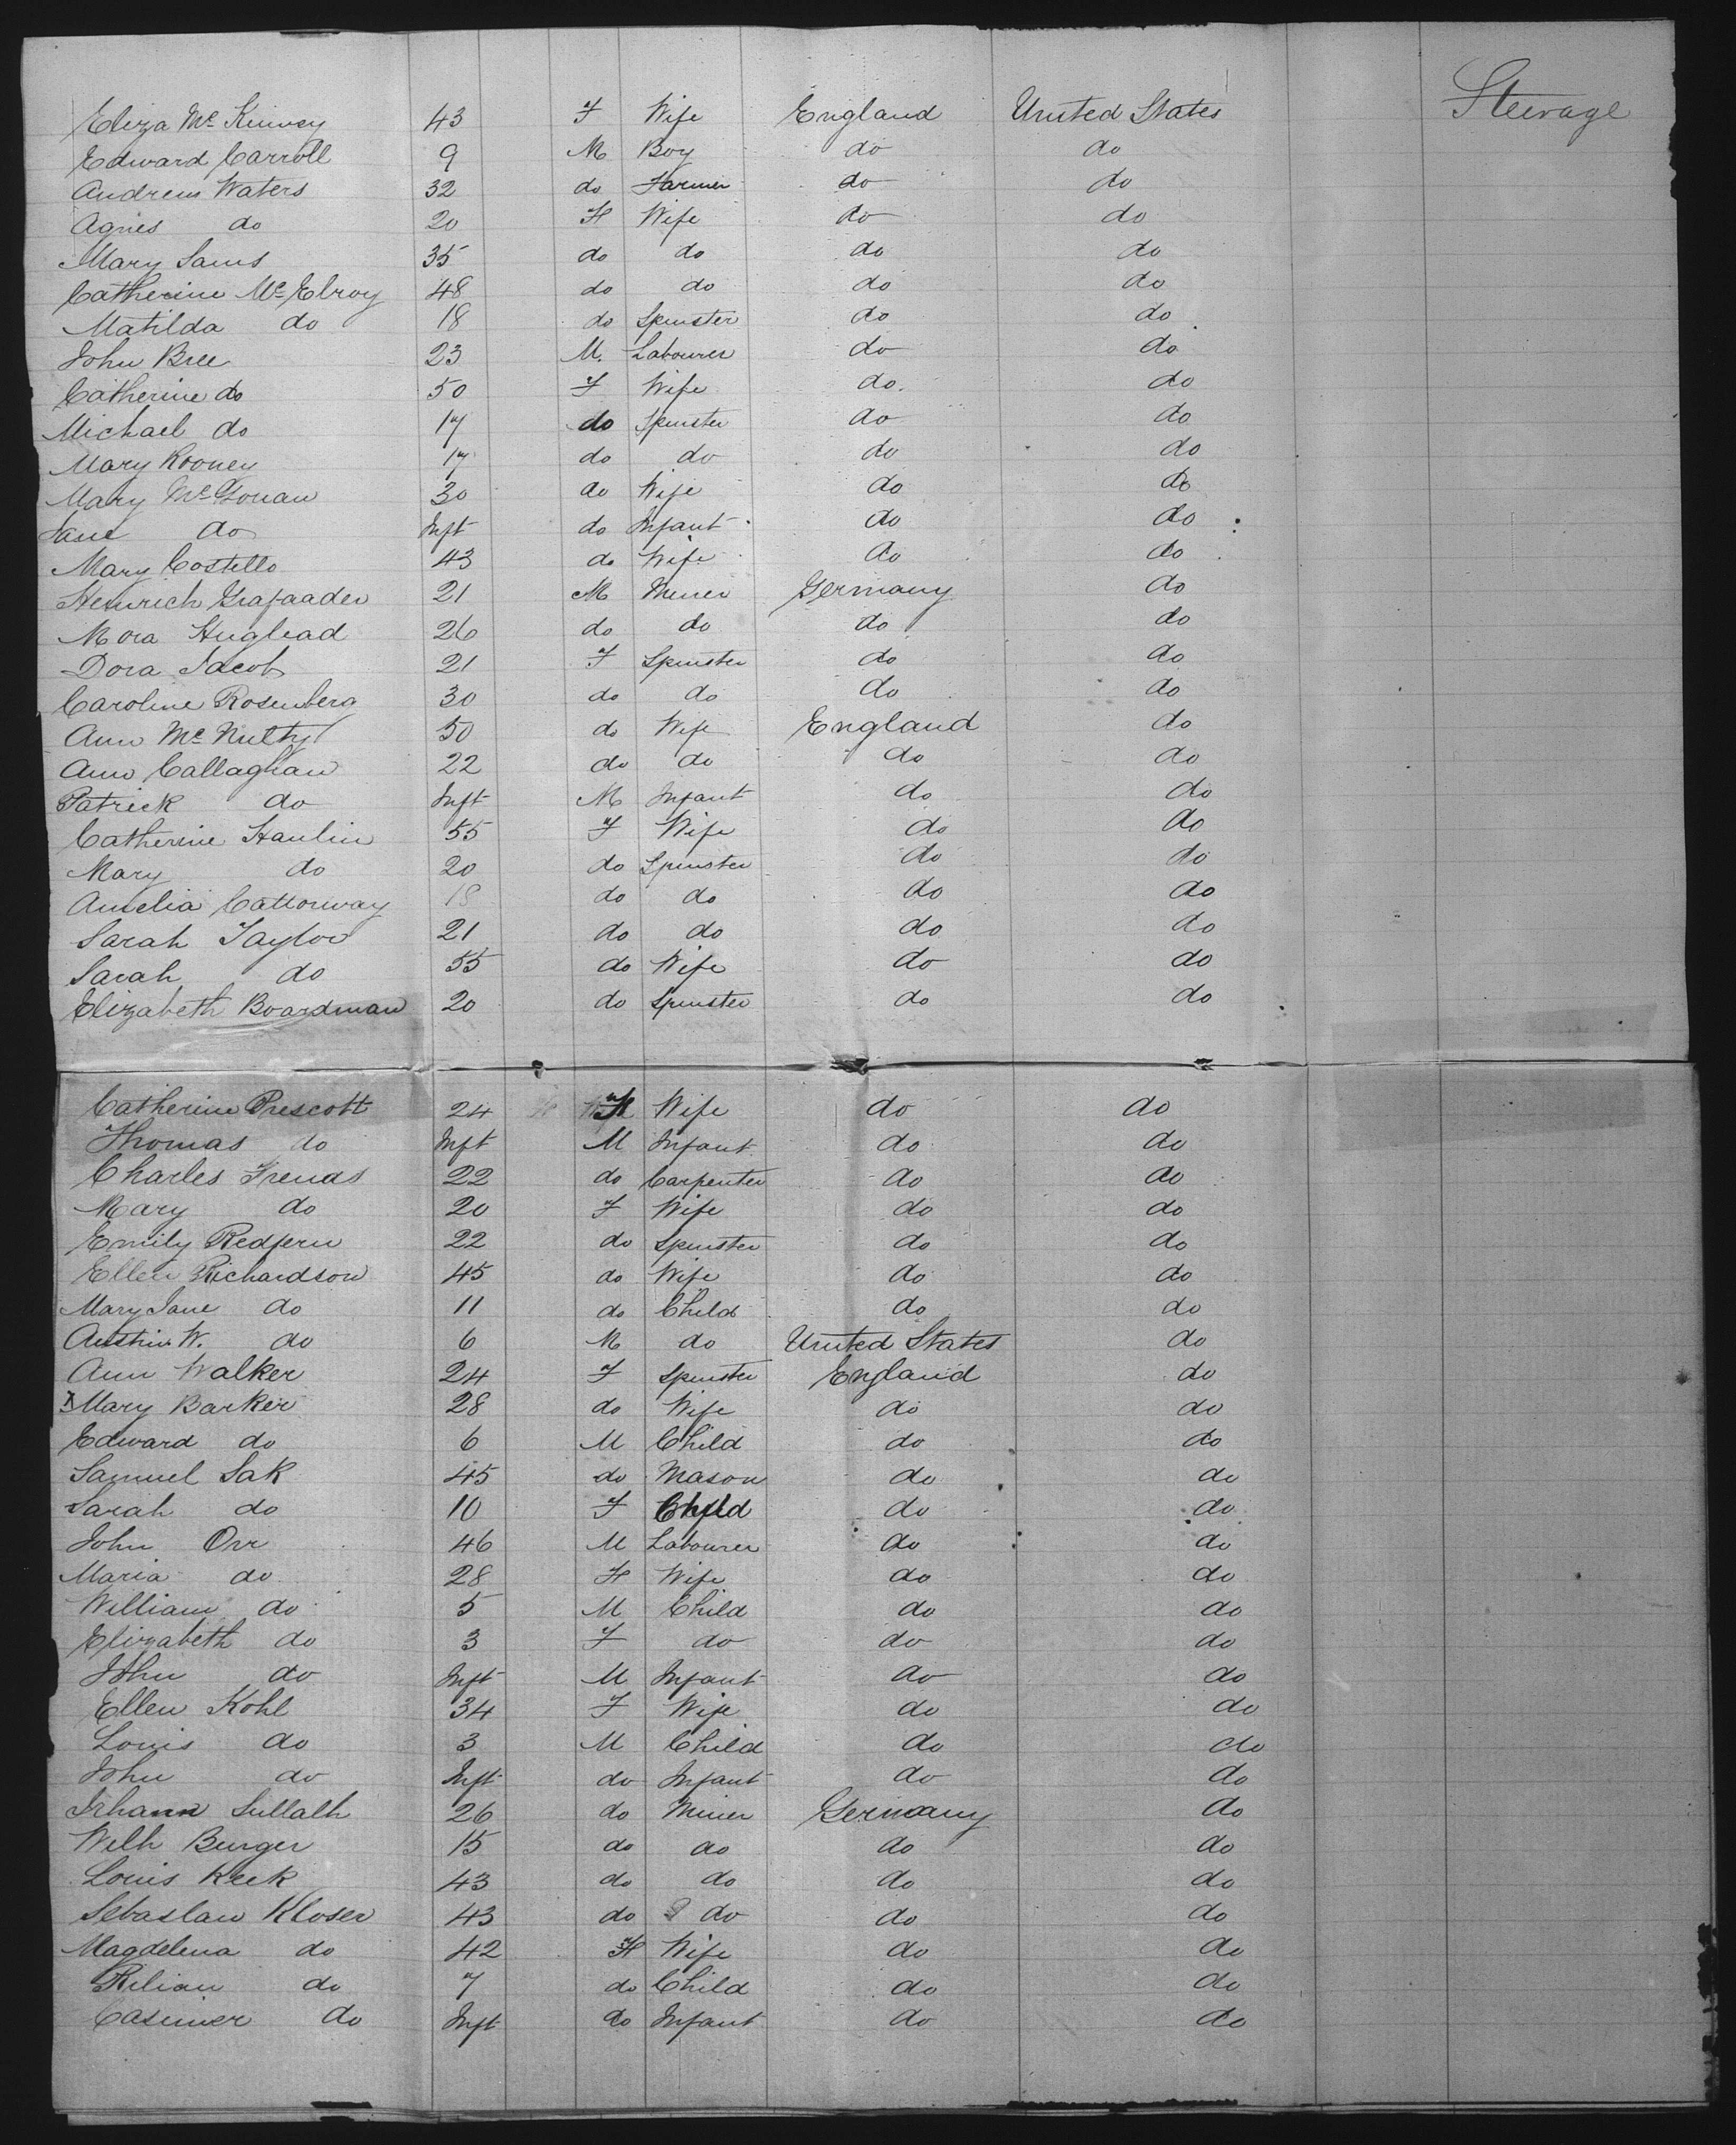 Steerage
Eliza Mc Kinney 43 F Wife England United States
Edward Carroll 9 M Boy do do
Andrew Waters 32 do Farmer do do
Agnes do 20 F Wife do do
Mary Sams 35 do do do do
Catherine Mc Elroy 48 do do do do
Matilda do 18 do Spinster do do
John Bree 23 M. Labourer do do
Catherine do 50 F Wife do. do
Michael do 17 do Spinster do do
Mary Rooney 17 do do do do
Mary Mc Gouan 30 do Wife do do
Jane do Inft do Infant do do
Mary Costello 43 do Wife do do
Heinrich 21 M Miner Germany do
26 do do do do
Dora Jacob 21 F Spinster do do
Caroline Rosenberg 30 do do do do
Ann Mc Nulty 50 do Wife England do
Ann Callaghan 22 do do do do
Patrick do Inft M Infant do do
Catherine Hanlin 55 F Wife do do
Mary do 20 do Spinster do do
Amelia Cattonway 18 do do do do
Sarah Taylor 21 do do do do
Sarah do 55 do Wife do do
Elizabeth Boardman 20 do Spinster do do
Catherine Prescott 24 F Wife do do
Thomas do Inft M Infant do do
Charles 22 do Carpenter do do
Mary do 20 F Wife do do
Emily Redfern 22 do Spinster do do
Ellen Richardson 45 do Wife do do
Mary Jane do 11 do Child do do
Austin W. do 6 M do United States do
Ann Walker 24 F Spinster England do
Mary Barker 28 do Wife do do
Edward do 6 M Child do do
Samuel Sak 45 do Mason do do
Sarah do 10 F Child do do
John Orr 46 M Labourer do do
Maria do 28 F Wife do do
William do 5 M Child do do
Elizabeth do 3 F do do do
John do Inft M Infant do do
Ellen Kohl 34 F Wife do do
Louis do 3 M Child do do
John do Inft do Infant do do
Johann Sullalh 26 do Miner Germany do
Welh Burger 15 do do do do
Louis Keek 43 do do do do
Sebaslan Kloser 43 do do do do
Magdelena do 42 F Wife do do
Kilian do 7 do Child do do
Casimer do Inft do Infant do do